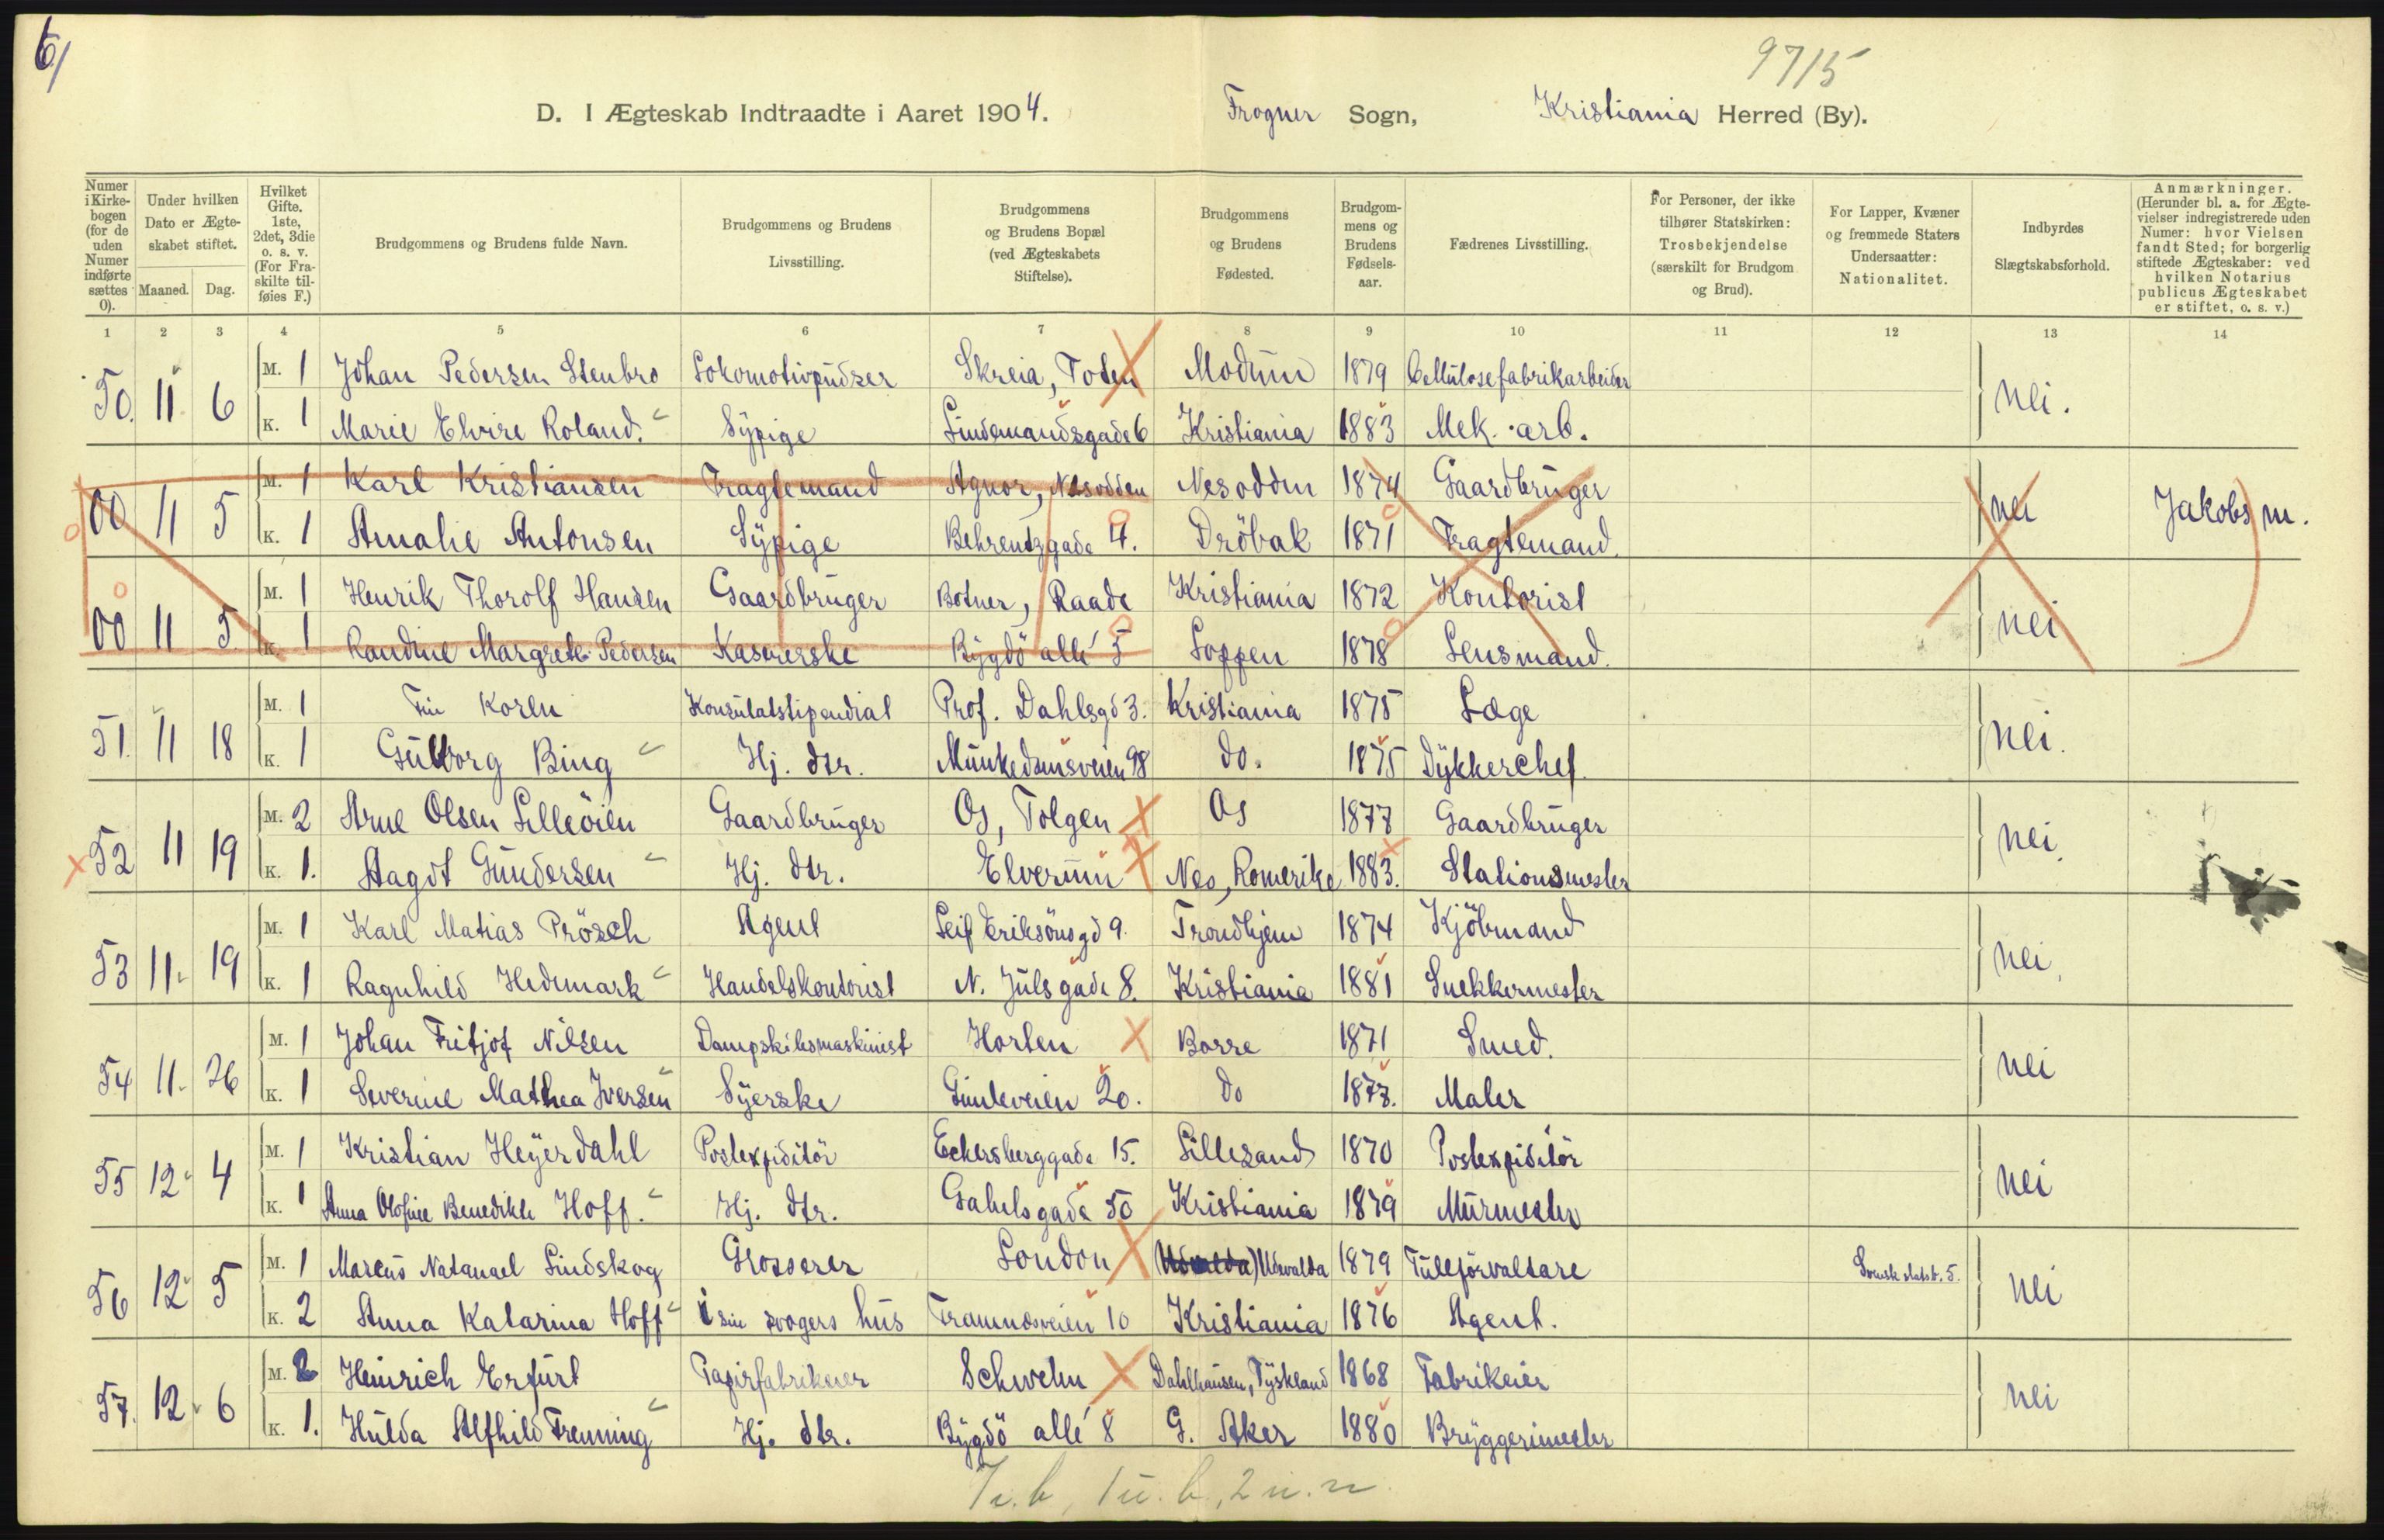 6/
9715
D. I Ægteskab Indtraadte i Aaret 1904. Frogner Sogn, Kristiania Herred (By).
Numer i Kirkebogen (for de uden Numer indførte sættes 0).
Under hvilken Dato er Ægteskabet stiftet.
Maaned. Dag.
Hvilket Gifte. 1ste, 2det, 3die o. s. v. (For Fraskilte tilføies F.)
Brudgommens og Brudens fulde Navn.
Brudgommens og Brudens Livsstilling.
Brudgommens og Brudens Bopæl (ved Ægteskabets Stiftelse).
Brudgommens og Brudens Fødested.
Brudgommens og Brudens Fødselsaar.
Fædrenes Livsstilling.
For Personer, der ikke tilhører Statskirken: Trosbekjendelse (særskilt for Brudgom og Brud).
For Lapper, Kvæner og fremmede Staters Undersaatter: Nationalitet.
Indbyrdes Slægtskabsforhold.
Anmærkninger. (Herunder bl. a. for Ægtevielser indregistrerede uden Numer: hvor Vielsen fandt Sted; for borgerlig stiftede Ægteskaber: ved hvilken Notarius publicus Ægteskabet er stiftet, o. s. v.)
1 2 3 4 5 6 7 8 9 10 11 12 13 14
50. 11 6 M. 1 Johan Pedersen Stenbro Lokomotivpudser Skreia, Toten Modum 1879 Cellulosefabrikarbeider nei.
K. 1 Marie Elvire Roland. Sypige Lindemandsgade 6 Kristiania 1883 Mek. arb.
00 11 5 M. 1 Karl Kristiansen Fragtemand Agnor, Nesodden Nesodden 1874 Gaardbruger nei Jakobs m.
K. 1 Amalie Antonsen Sypige Behrentzgade 4. Dröbak 1871 Fragtemand.
00 11 5 M. 1 Henrik Thorolf Hansen Gaardbruger Botner, Raade Kristiania 1872 Kontorist nei
K. 1 Randine Margrete Pedersen Kasererske Bygdö allé 5 Loppen 1878 Lensmand.
51. 11 18 M. 1 Fin Koren Konsulatstipendiat Prof. Dahlsgd 3. Kristiania 1875 Læge nei.
K. 1 Gulborg Bing Hj. dtr. Munkedamsveien 98 do. 1875 Dykkerchef.
52 11 19 M. 2 Arne Olsen Lilleöien Gaardbruger Os, Tolgen Os 1877 Gaardbruger nei.
K. 1. Aagot Gundersen Hj. dtr. Elverum Nes, Romerike 1883. Stationsmester
53 11 19 M. 1 Karl Matias Prösch Agent Leif Eriksönsgd 9. Trondhjem 1874 Kjöbmand nei.
K. 1 Ragnhild Hedemark Handelskontorist N. Juls gade 8. Kristiania 1881 Snekkermester
54 11 26 M. 1 Johan Fritjof Nilsen Dampskibsmaskinist Horten Borre 1871 Smed. nei
K. 1 Severine Mathea Iversen Syerske Gimleveien 20. do 1873. Maler
55 12 4 M. 1 Kristian Heyerdahl Postexpiditör Eckersberggade 15. Lillesand 1870 Postexpiditör nei
K. 1 Anna Olofine Benedikte Hoff. Hj. dtr. Gabelsgade 50 Kristiania 1879 Murmester
56 12 5 M. 1 Marcus Natanael Lindskog Grosserer London Udevalda 1879 Tulleförvaltare Svensk statsb. 5. nei
K. 2 Anna Katarina Hoff i sin svogers hus Framnæsveien 10 Kristiania 1876 Agent.
57. 12 6 M. 2 Heinrich Erfurt Papirfabrikeier Schwelm Dahlhausen, Tyskland 1868 Fabrikeier nei
K. 1. Hulda Alfhild Frenning Hj. dtr. Bygdö allé 8 G. Aker 1880 Bryggerimester
7 i. b, 1 u. b, 2 u. n